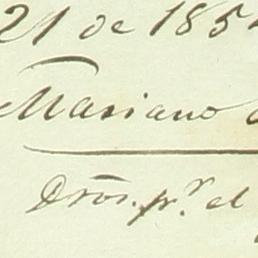 21 de 185
Mariano
Dros. pr. el